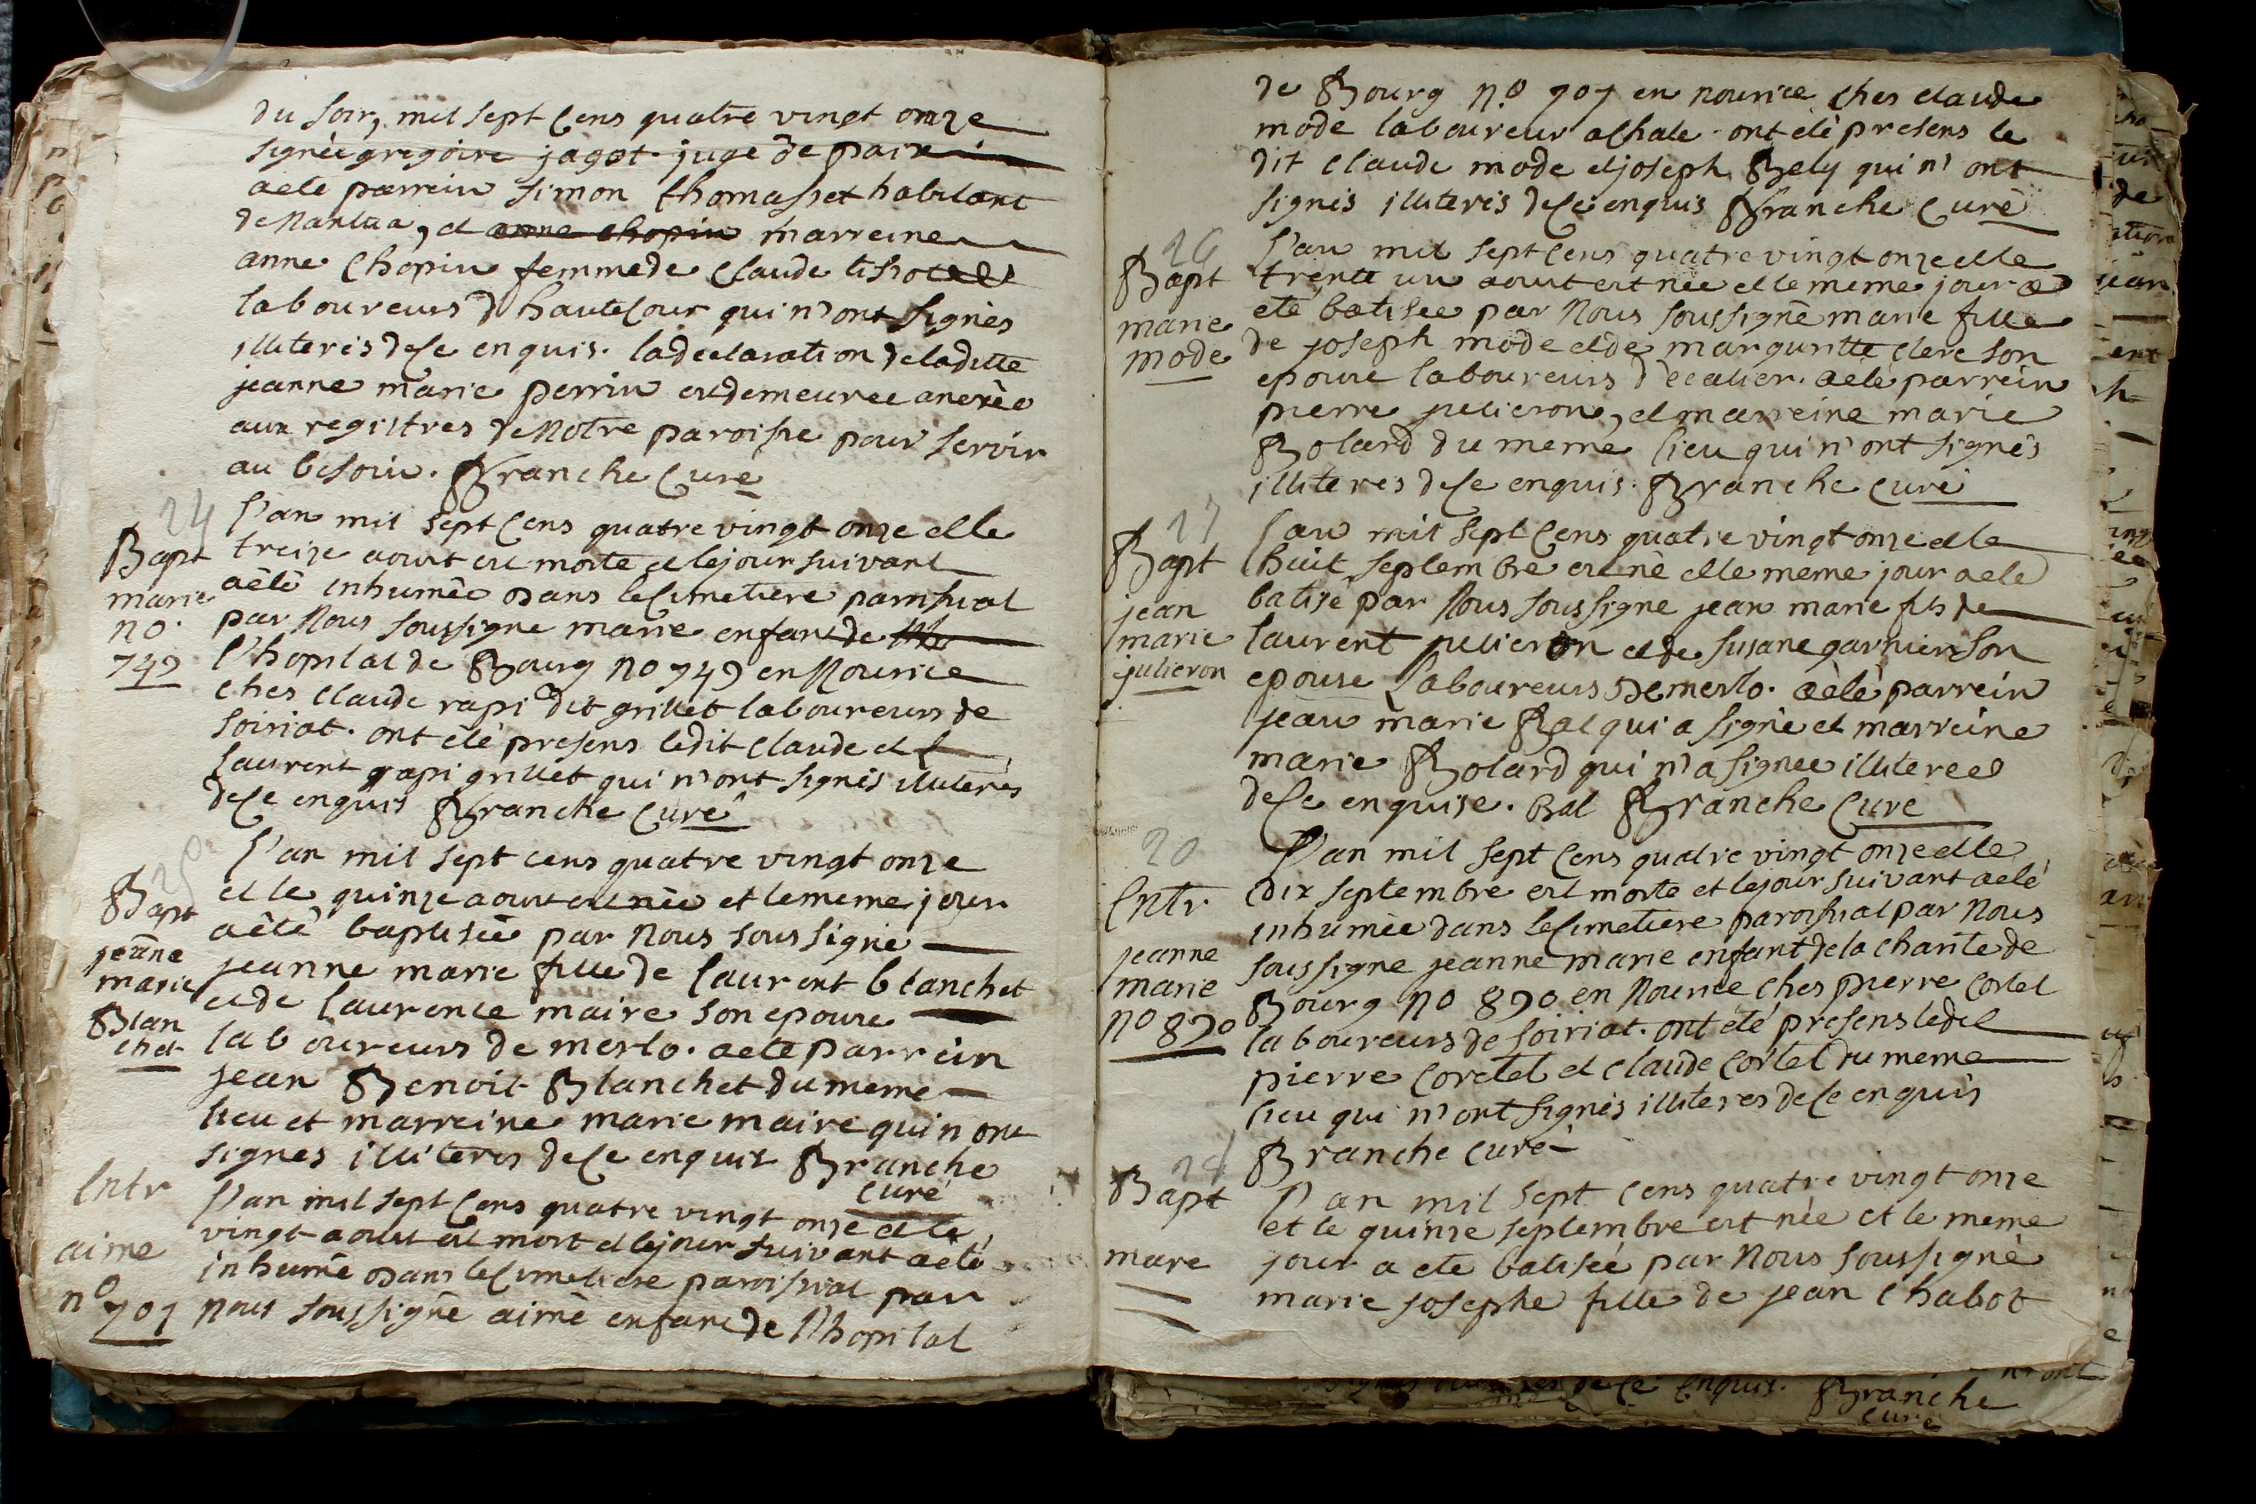 du soir, mil sept cens quatre vingt onze
signée gregoire jagot juge de paix
a ete parrein simon thomasset habitant
de Nantua, et anne chopin marreine
anne chopin femme de claude tissot
laboureurs d hautecour qui n'ont signés
illiterés de ce enquis. la declaration de laditte
jeanne marie perrin est demeuree anexée
aux registres de Notre paroisse pour servir
au besoin. Branche Curé
24
Bapt
marie
no.
749
L'an mil sept cens quatre vingt onze et le
treize aout est morte et le jour suivant
a été inhumée dans le cimetiere paroissial
par Nous soussigné marie enfant de
l'hopital de Bourg no 749 en Nourice
ches claude rapi dit grillet laboureurs de
soiriat. ont été presens ledit claude et
laurent rapi grillet qui n'ont signés illiterés
de ce enquis Branche Curé
25
Bapt
jeanne
marie
Blan
chet
L'an mil sept cens quatre vingt onze
et le quinze aout est née et le meme jour
a été baptisée par Nous soussigné
jeanne marie fille de laurent blanchet
et de laurence maire son epouse
laboureurs de merlo. a ete parrein
jean Benoit Blanchet du meme
lieu et marreine marie maire qui n ont
signes illiteres de ce enquis Branche
curé
Entr
aime
no
707
L'an mil sept cens quatre vingt onze et le
vingt aout est mort et le jour suivant a eté
inhumé dans le cimetiere paroissial par
nous soussigné aimé enfant de l'hopital
de Bourg no 707 en nourice ches claude
mode laboureur a chale. ont eté presens le
dit claude mode et joseph Bely qui n'ont
signés illiterés de ce enquis Branche Curé
26
Bapt
marie
mode
L'an mil sept cens quatre vingt onze et le
trente un aout est née et le meme jour a
eté batisée par Nous soussigné marie fille
de joseph mode et de margueritte clerc son
epouse laboureurs d'ecalier. a eté parrein
pierre julieron, et marreine marie
Bolard du meme lieu qui n'ont signés
illiteres de ce enquis. Branche curé
27
Bapt
jean
marie
julieron
L'an mil sept cens quatre vingt onze et le
huit septembre est né et le meme jour a ete
batisé par Nous soussigné jean marie fils de
laurent julieron et de susane garnier son
epouse Laboureurs de merlo. a été parrein
jean marie Bal qui a signé et marreine
marie Bolard qui n'a signée illiteree
de ce enquise. Bal Branche Cure
20
Entr
jeanne
marie
no 890
L'an mil sept cens quatre vingt onze et le
dix septembre est morte et le jour suivant a eté
inhumée dans le cimetiere paroissial par Nous
soussigné jeanne marie enfant de la charite de
Bourg no 890 en Nourice ches pierre Cortet
laboureurs de soiriat. ont été presens ledit
pierre Cortet et claude Cortet du meme
lieu qui n'ont signés illiteres de ce enquis
Branche curé
28
Bapt
mare
L'an mil sept cens quatre vingt onze
et le quinze septembre est née et le meme
jour a ete batisée par Nous soussigné
marie josephe fille de jean Chabot
de ce enquis. Branche
curé